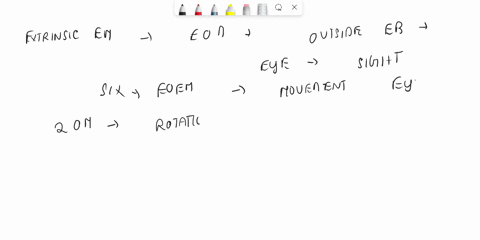 EXTRINSIC EM → EOM → OUTSIDE EB →
EYE → SIGHT
SIX → EOEM → MOVEMENT EY
2 OM → ROTATIC